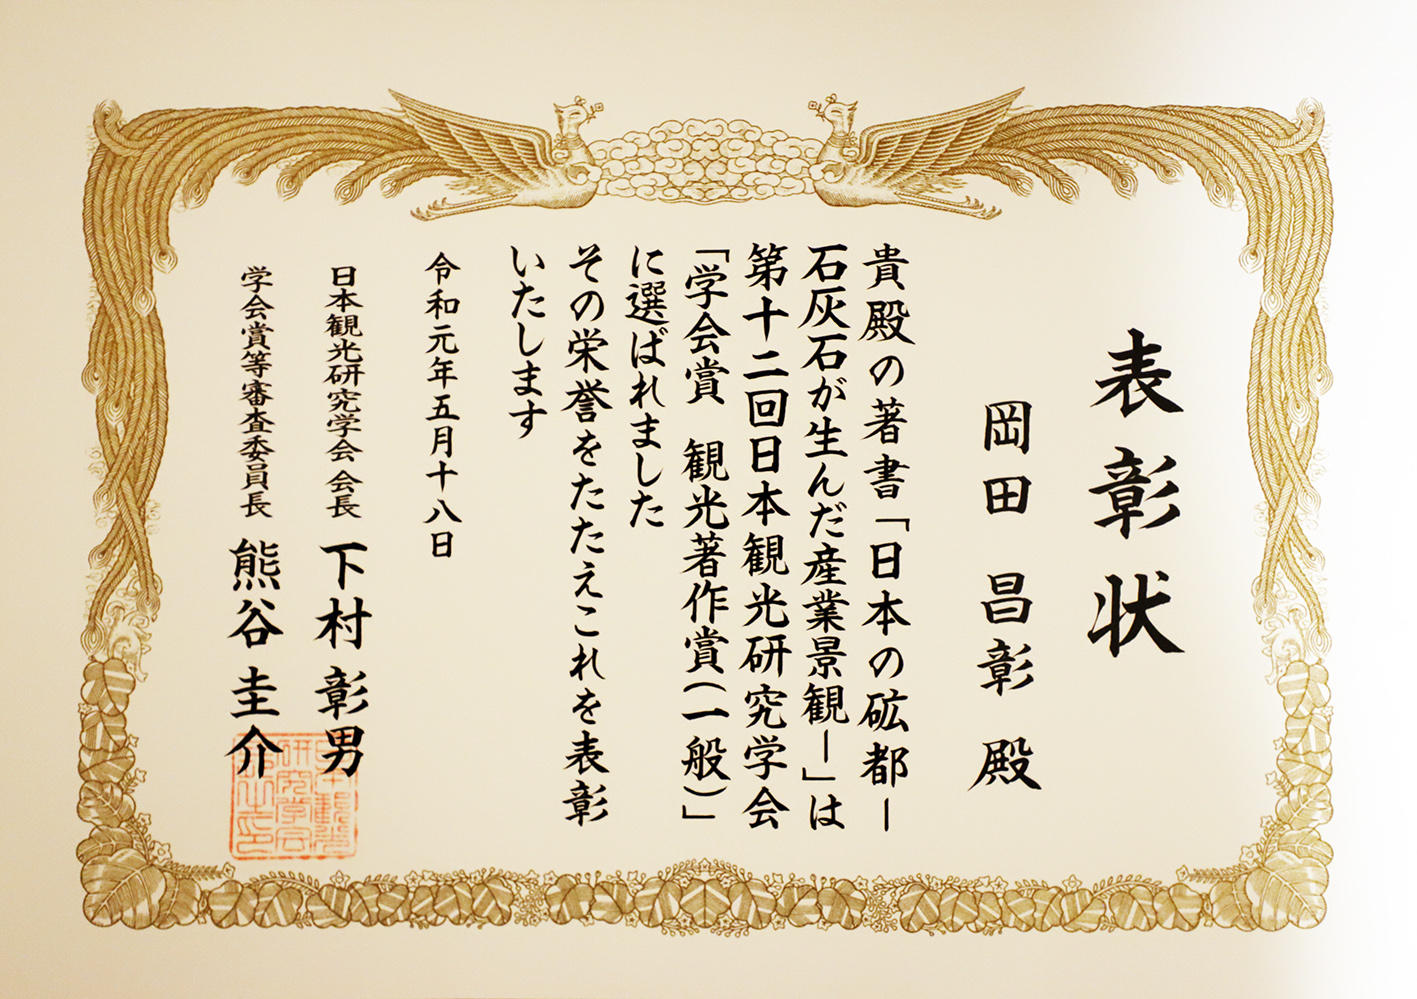 表彰状
岡田昌彰 殿
貴殿の著書「日本の砿都ー
石灰石が生んだ産業景観ー」は
第十二回日本観光研究学会
「学会賞 観光著作賞(一般)」
に選ばれました
その栄誉をたたえこれを表彰
いたします
令和元年五月十八日
日本観光研究学会 会長 下村 彰男
学会賞等審査委員長 熊谷 圭介